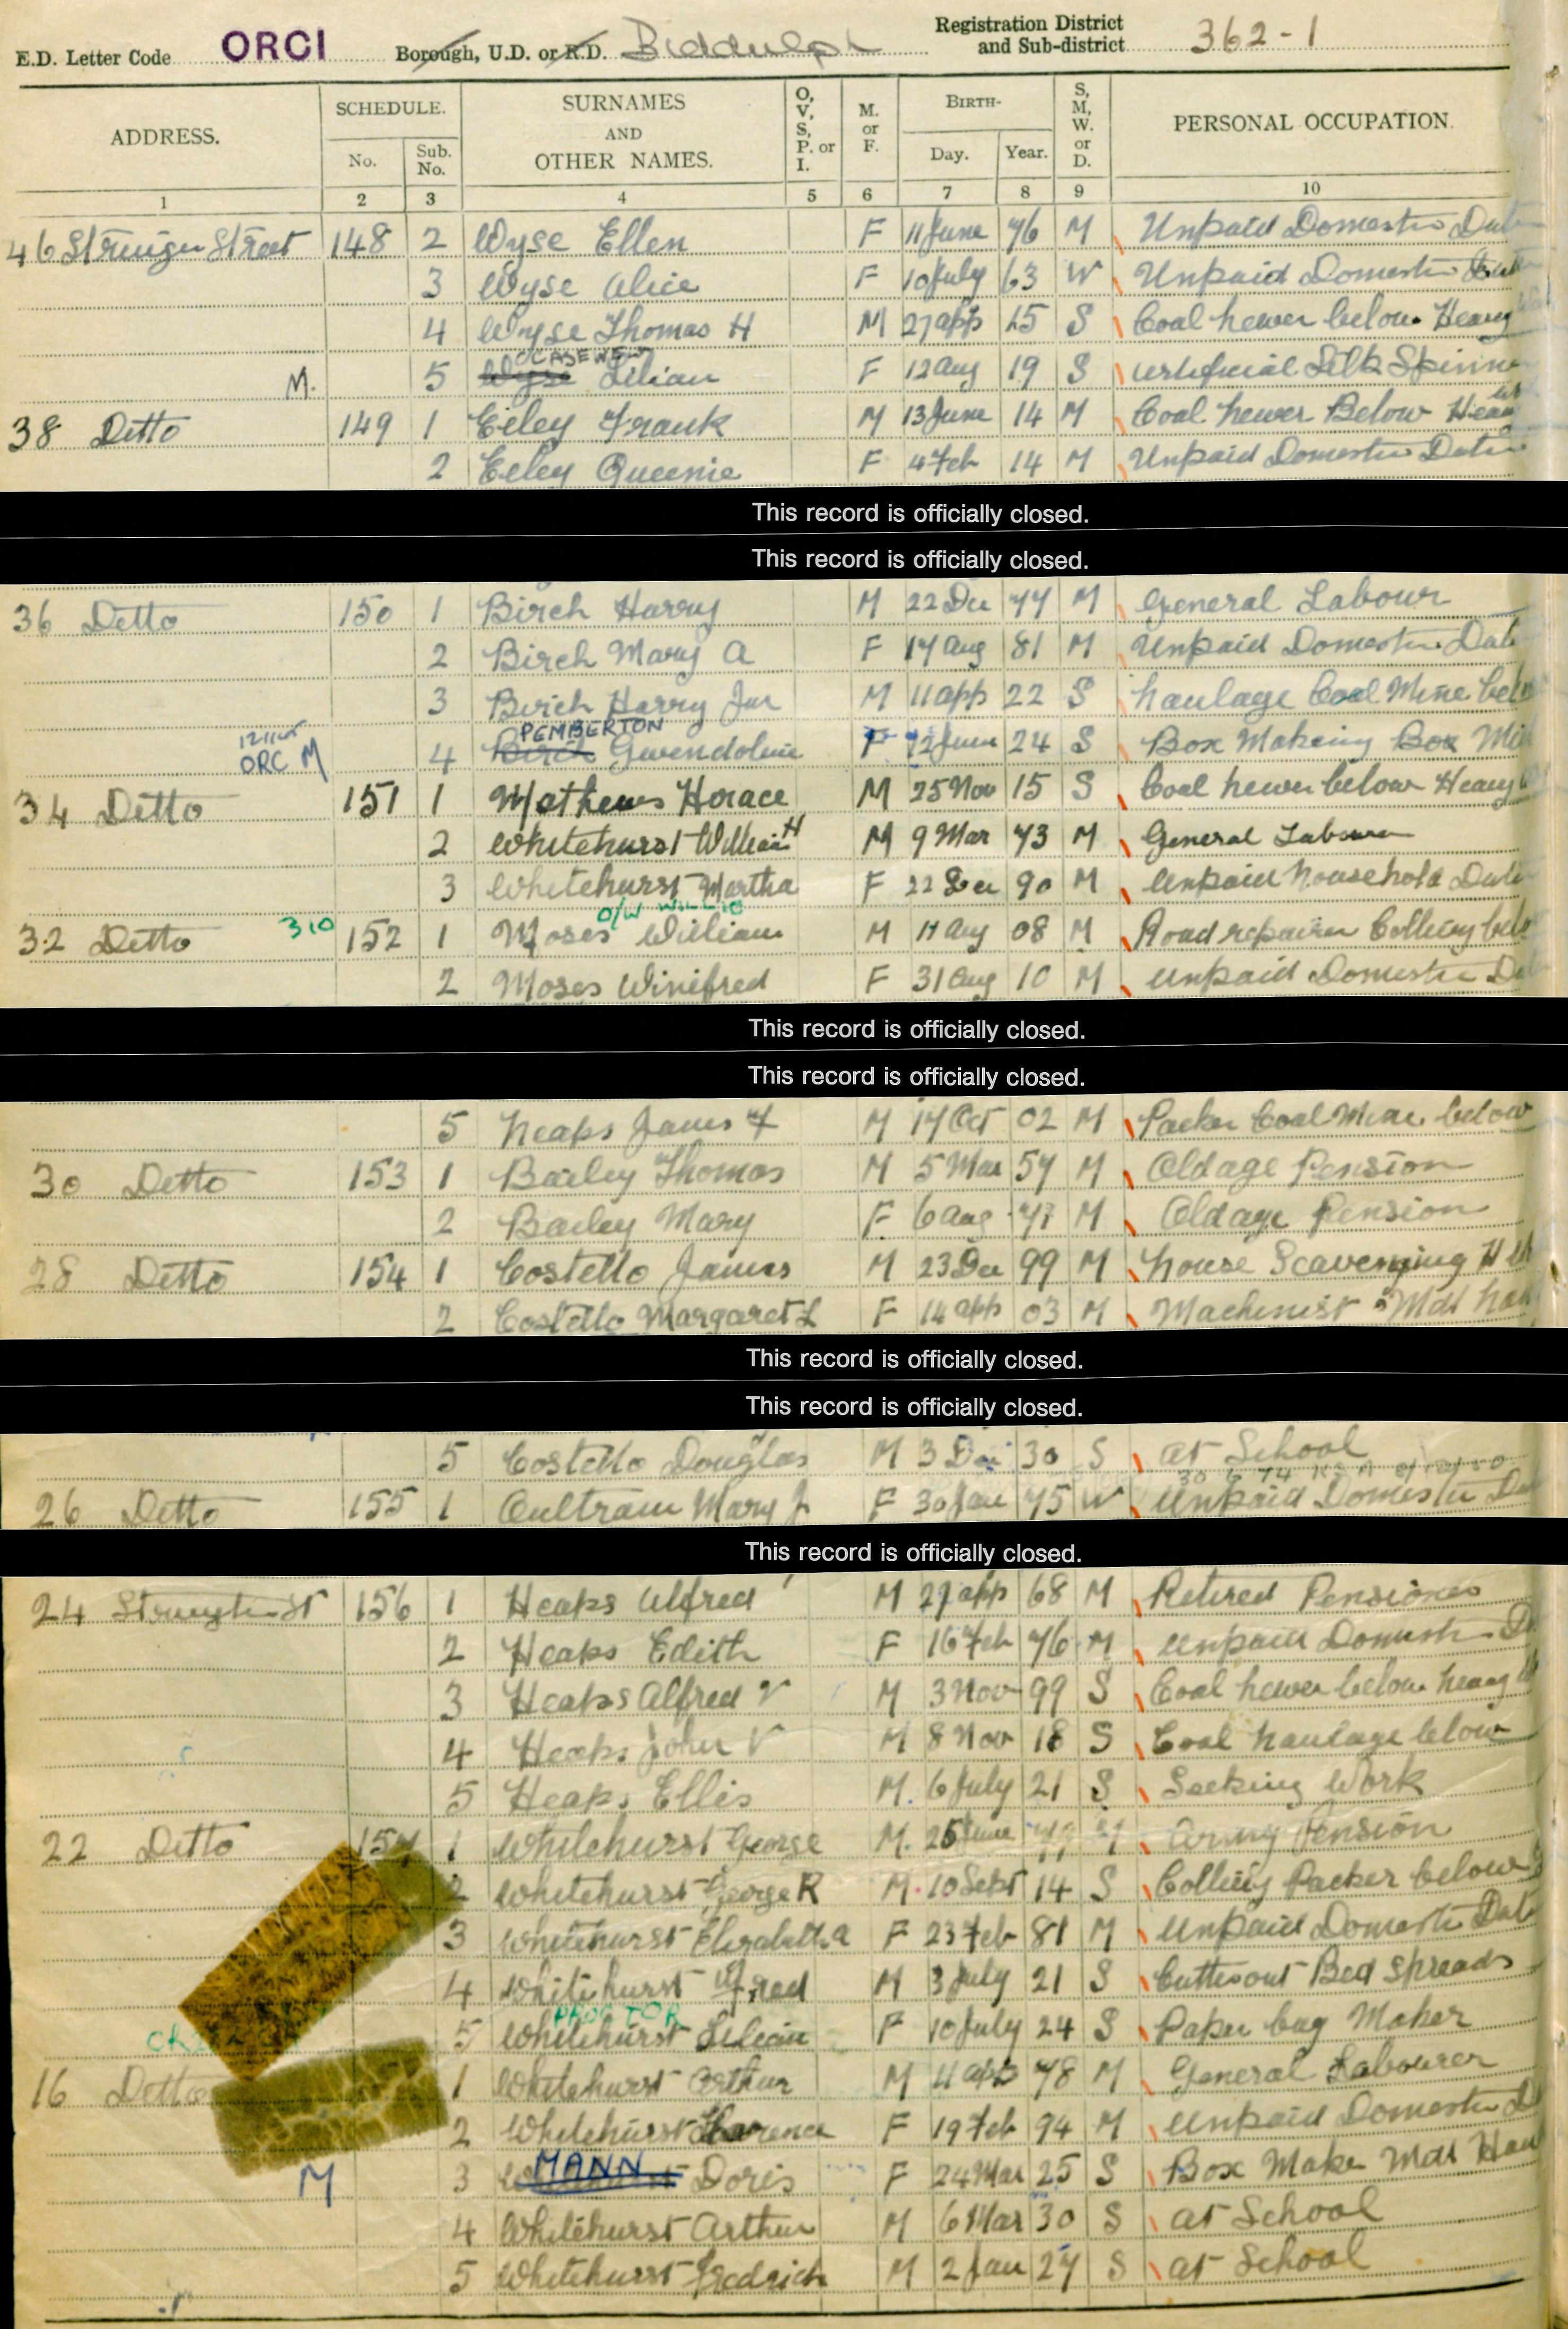 E.D. Letter Code ORCI Borough, U.D. or R.D. Biddulph Registration District and Sub-district 362-1
ADDRESS. SCHEDULE. No. Sub. No. SURNAMES AND OTHER NAMES. O, V, S, P. or I. M. or F. BIRTH- Day. Year. S, M, W. or D. PERSONAL OCCUPATION.
1 2 3 4 5 6 7 8 9 10
46 Street 148 2 Wyse Ellen F 11 June 76 M Unpaid Domestic
3 Wyse Alice F 10 July 63 W Unpaid Domestic
4 Wyse Thomas H M 27 app 15 S Coal hewer below Heavy
M. 5 Wyse Lilian F 12 Aug 19 S Silk
38 Ditto 149 1 Eeley Frank M 13 June 14 M Coal hewer Below
2 Eeley Queenie F 4 Feb 14 M Unpaid Domestic
This record is officially closed.
This record is officially closed.
36 Ditto 150 1 Birch Harry M 22 Dec 77 M General Labour
2 Birch Mary A F 17 Aug 81 M Unpaid Domestic
3 Birch Harry Jnr M 11 app 22 S haulage Coal Mine
PEMBERTON
ORC M 4 Birch Gwendoline F 12 June 24 S Box Making Box
34 Ditto 151 1 Mathews Horace M 25 Nov 15 S Coal hewer below Heavy
2 Whitehurst William H M 9 Mar 73 M General Labourer
3 Whitehurst Martha F 22 Dec 90 M Unpaid household
O/W WILLIE
32 Ditto 310 152 1 Moses William M 17 Aug 08 M Road repairer Colliery
2 Moses Winifred F 31 Aug 10 M unpaid Domestic
This record is officially closed.
This record is officially closed.
5 Heaps James F M 17 Oct 02 M Packer Coal Mine below
30 Ditto 153 1 Bailey Thomas M 5 Mar 57 M Oldage Pension
2 Bailey Mary F 6 Aug M Oldage Pension
28 Ditto 154 1 Costello James M 23 Dec 99 M house Scavenging
2 Costello Margaret L F 14 app 03 M Machinist
This record is officially closed.
This record is officially closed.
5 Costello Douglas M 3 Dec 30 S at School
26 Ditto 155 1 Oultram Mary J F 30 Jan 75 W Unpaid Domestic
This record is officially closed.
24 St 156 1 Heaps Alfred M 27 app 68 M Retired Pensioner
2 Heaps Edith F 16 Feb 76 M unpaid Domestic
3 Heaps Alfred V M 3 Nov 99 S Coal hewer below heavy
4 Heaps John V M 8 Nov 18 S Coal haulage below
5 Heaps Ellis M. 6 July 21 S Seeking Work
22 Ditto 157 1 Whitehurst George M. 25 June Army Pension
2 Whitehurst George R M. 10 Sept 14 S Colliery Packer below
3 Whitehurst Elizabeth a F 23 Feb 81 M unpaid Domestic
4 Whitehurst Wfred M 3 July 21 S Cutterout Bed Spreads
PROCTOR
5 Whitehurst Lilian F 10 July 24 S Paper bag Maker
16 Ditto 1 Whitehurst Arthur M 4 app 78 M General Labourer
2 Whitehurst Florence F 19 Feb 94 M unpaid Domestic
MANN
M 3 Doris F 24 Mar 25 S Box Make
4 Whitehurst Arthur M 6 Mar 30 S at School
5 Whitehurst Fredrich M 2 Jan 27 S at School